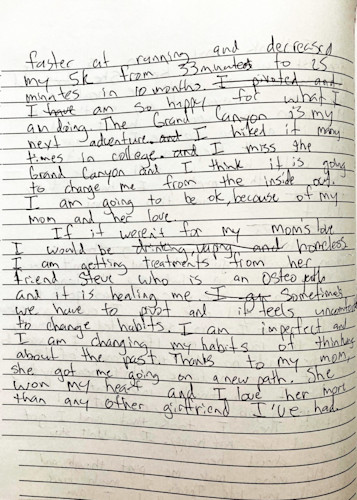 faster at running and decreased
my 5k from 33 minutes to 25
minutes in 10 months. I pivoted and
I have am so happy for what I
am doing. The Grand Canyon is my
next adventure. and I hiked it many
times in college. and I miss the
Grand Canyon and I think it is going
to change me from the inside out.
I am going to be ok, because of my
mom and her love.
If it weren't for my mom's love
I would be drinking, and hopeless
I am getting treatments from her
friend Steve who is an Osteopath
and it is healing me. I Sometimes
we have to pivot and it feels uncomfortable
to change habits. I am imperfect and
I am changing my habits of thinking
about the past. Thanks to my mom,
she got me going on a new path. She
won my heart and I love her more
than any other girlfriend I've had.